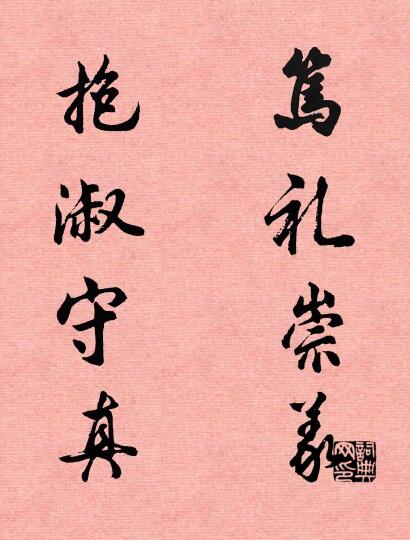 篤礼崇義
抱淑守真
詞典網印